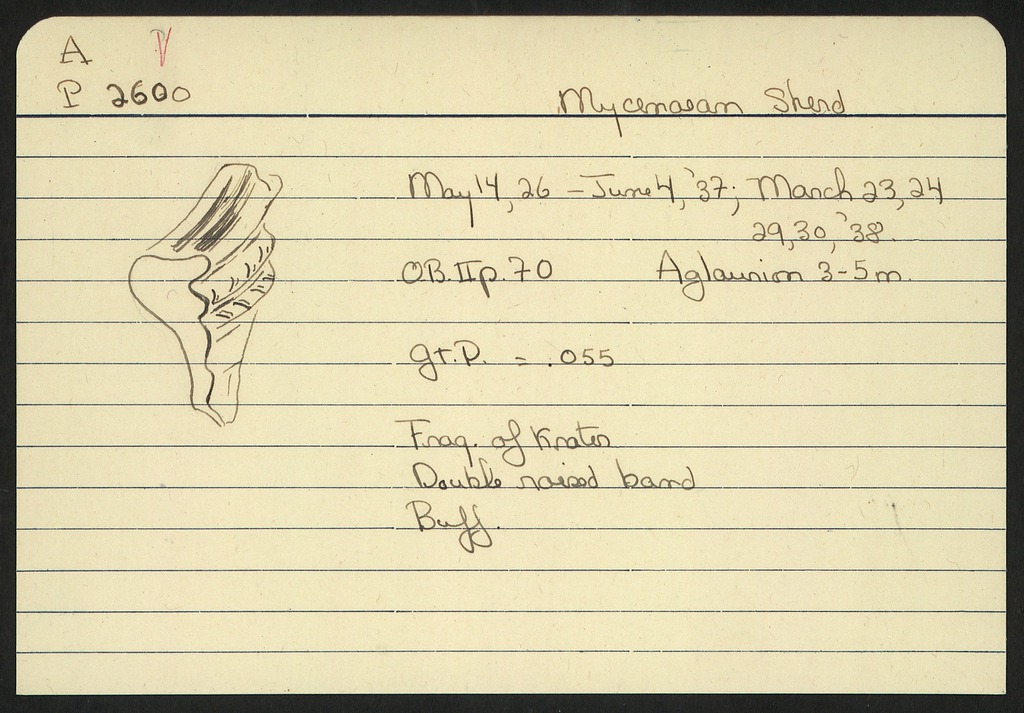 A V
P 2600
Mycenaean Sherd
May 14, 26 – June 4, '37; March 23, 24
29, 30, '38.
OB. II p. 70 Aglaurion 3-5 m.
gr. P. = .055
Frag. of Krater
Double raised band
Buff.